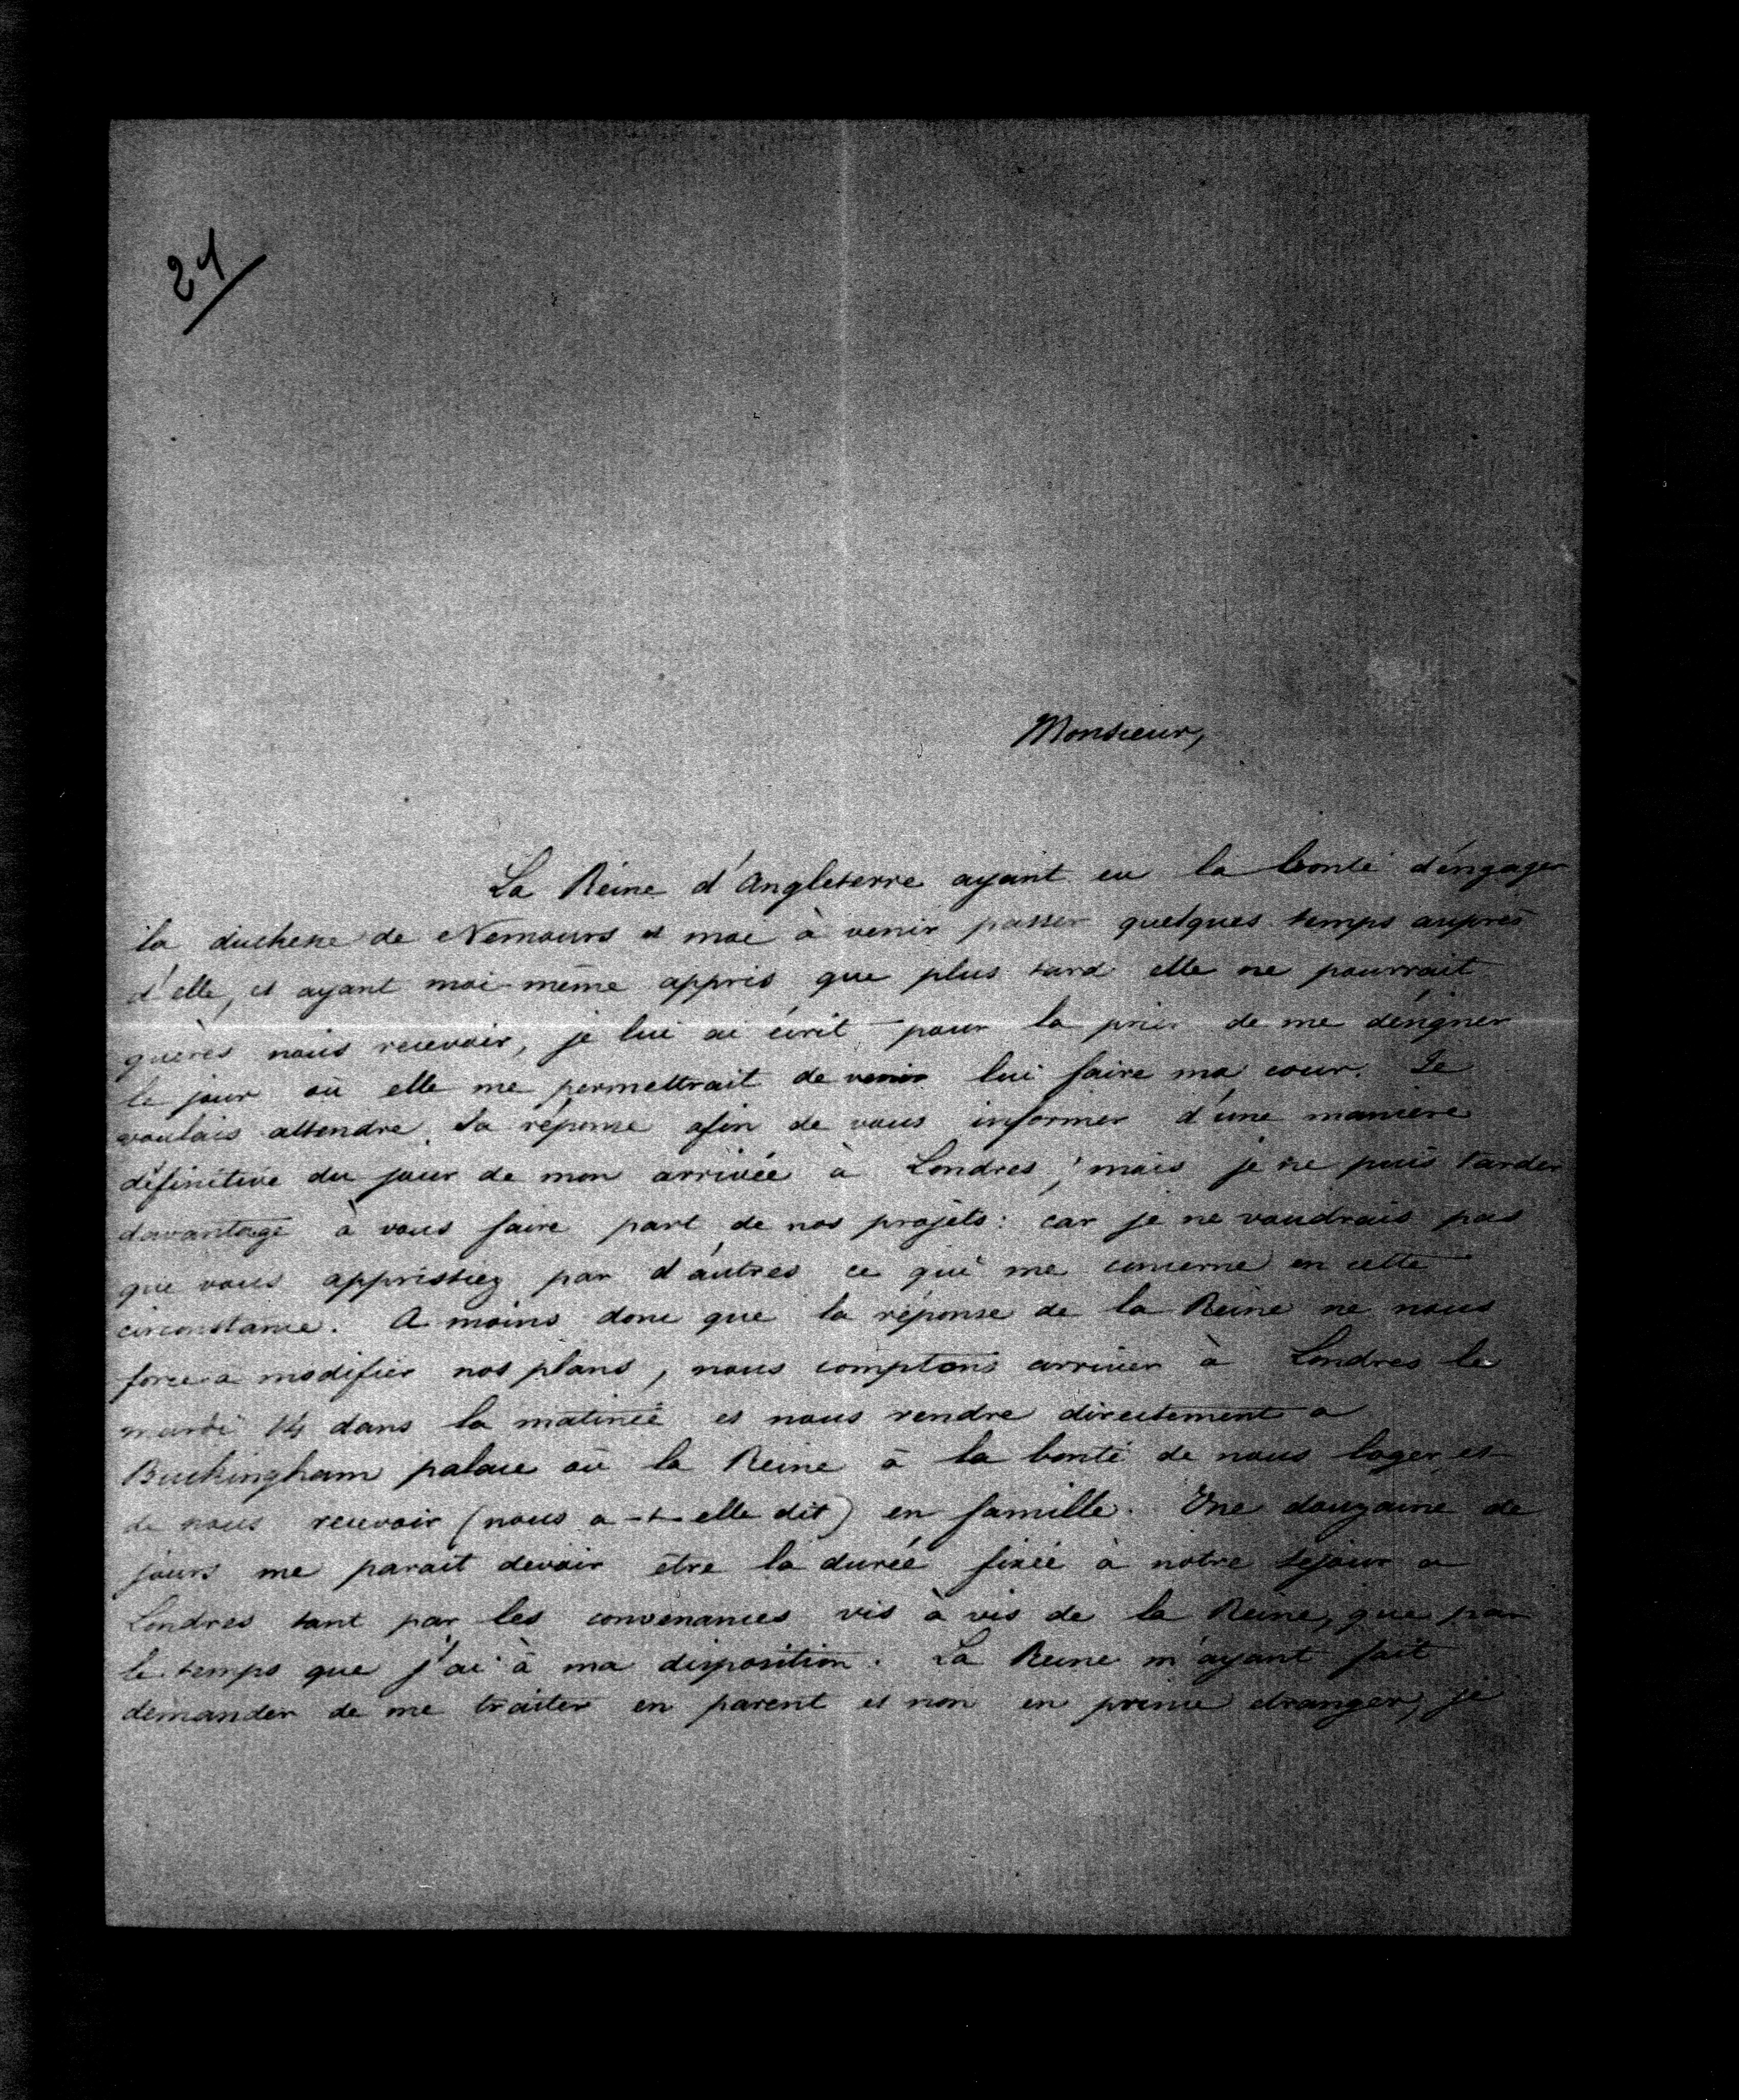 21
Monsieur,
La Reine d'Angleterre ayant eu la bonté d'engager
la duchesse de Nemours et moi à venir passer quelques temps auprès
d'elle, et ayant moi-même appris que plus tard elle ne pourrait
guères nous recevoir, je lui ai écrit pour la prier de me désigner
le jour où elle me permettrait de venir lui faire ma cour. Je
voulais attendre sa réponse afin de vous informer d'une manière
définitive du jour de mon arrivée à Londres; mais je ne puis tarder
davantage à vous faire part de nos projets: car je ne voudrais pas
que vous apprissiez par d'autres ce qui me concerne en cette
circonstance. A moins donc que la réponse de la Reine ne nous
force à modifier nos plans, nous comptons arriver à Londres le
mardi 14 dans la matinée et nous rendre directement a
Buckingham palace où la Reine a la bonté de nous loger et
de nous recevoir (nous a-t-elle dit) en famille. Une douzaine de
jours me parait devoir être la durée fixée à notre séjour a
Londres tant par les convenances vis à vis de la Reine, que par
le temps que j'ai à ma disposition. La Reine m'ayant fait
demander de me traiter en parent et non en prince étranger, je